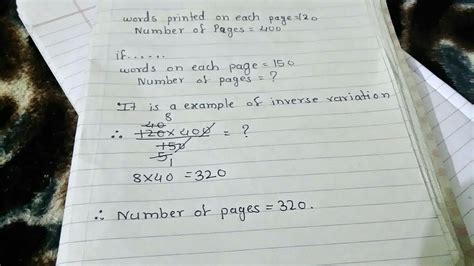 words printed on each page=120
Number of Pages = 400
if......
words on each page = 150
Number of pages = ?
It is a example of inverse variation
40 8
∴ 120 × 400 = ?
150
5 1
8×40 = 320
∴ Number of pages = 320.